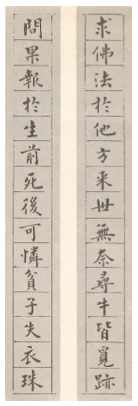 求佛法於他方來世無奈尋牛皆覓跡
問果報於生前死後可憐貧子失衣珠